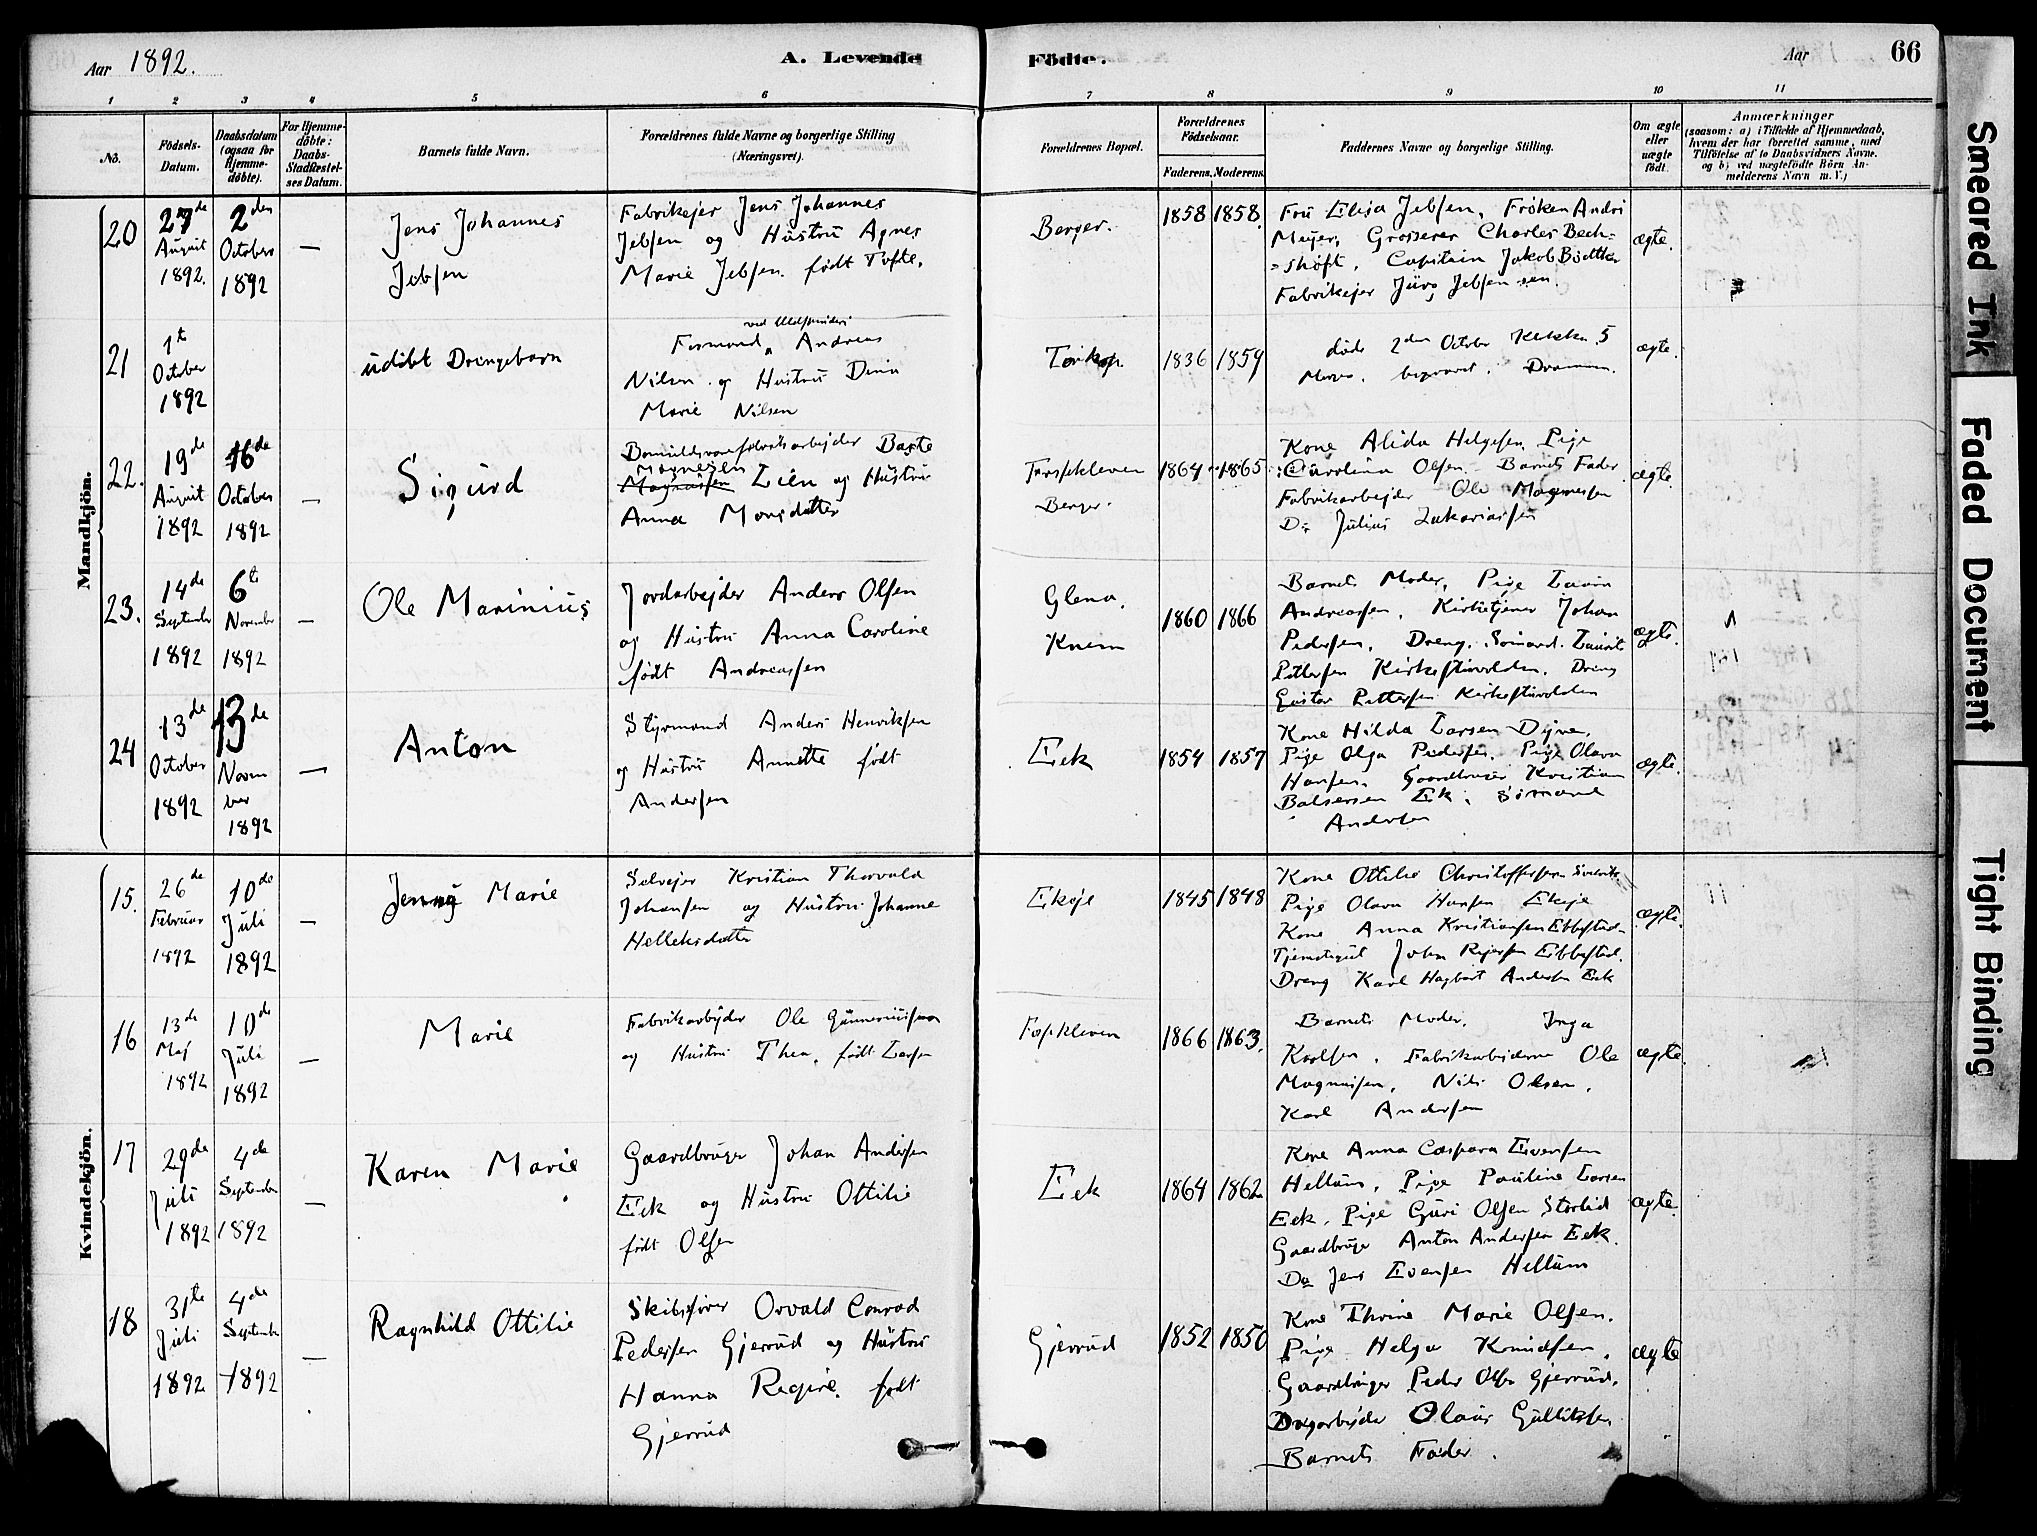 Aar 1892.
A. Levende Födte.
Aar
66
1 2 3 4 5 6 7 8 9 10 11
No.
Födsels-Datum.
Daabsdatum (ogsaa for Hjemme-döbte).
For Hjemme-döbte: Daabs-Stadfæstel-ses Datum.
Barnets fulde Navn.
Forældrenes fulde Navne og borgerlige Stilling (Næringsvei).
Forældrenes Bopæl.
Forældrenes Födselsaar.
Faderens. Moderens.
Faddernes Navne og borgerlige Stilling.
Om ægte eller uægte födt.
Anmærkninger
(saasom: a) i Tilfælde af Hjemmedaab,
hvem der har forrettet samme, med
Tilföielse af to Daabsvidners Navne.
og b) ved uægtefödte Börn An-
melderens Navn m. V.)
Mandkjön.
20
27de August 1892.
2den October 1892
—
Jens Johannes
Jebsen
Fabrikejer Jens Johannes
Jebsen og Hustru Agnes
Marie Jebsen. født Tofte.
Berger.
1858 1858.
Fru Elisa Jebsen, Frøken Andri
Meyer, Grosserer Charles Bech-
=shöft, Capitain Jakob Bødtker
Fabrikejer Jürg Jebsen sen.
ægte.
21
1t October 1892
udöbt Drengebarn
Formand ved Uldspinderi Andreas
Nilsen og Hustru Dina
Marie Nilsen
Torkop.
1836 1859
døde 2den October
ægte.
22.
19de August 1892
16de October 1892
—
Sigurd
Bomuldsvarefabrikarbejder
Magnesen
Magnussen Lien og Hustru
Anna Monsdatter
Fosskleven
Berger.
1864 1865
Kone Alida Helgesen, Pige
Carolina Olsen. Barnets Fader
Fabrikarbejder Ole Magnesen
Do Julius Zakariassen
ægte.
23.
14de September 1892
6t November 1892
—
Ole Marinius
Jordarbejder Anders Olsen
og Hustru Anna Caroline
født Andreassen
Glena.
Knem
1860 1866
Barnets Moder, Pige Laura
Andreassen, Kirketjener Johan
Pedersen, Dreng, Sømand. Laurits
Pettersen Kirkestuvolden. Dreng
Gustav Pettersen Kirkestuvolden
ægte.
24
13de October 1892
13de Novem ber 1892
—
Anton
Styrmand Anders Henriksen
og Hustru Annette født
Andersen
Eek
1854 1857
Kone Hilda Larsen Dyve.
Pige Olga Pedersen, Pige Olava
Hansen. Gaardbruger Kristian
Balsersen Ek, Sömand
Andersen
ægte.
Kvindekjön.
15.
26de Februar 1892
10de Juli 1892
—
Jenny Marie
Selvejer Kristian Thorvald
Johansen og Hustru Johanne
Helleksdatter
Ekeje
1845 1848
Kone Ottilie Christoffersen
Pige Olava Hansen Ekeje
Kone Anna Kristiansen Ebbestad
Tjenestegut Johan Rejersen Ebbestad.
Dreng Karl Hagbart Andersen Eek
ægte.
16
13de Maj 1892
10de Juli 1892
—
Marie
Fabrikarbejder Ole Gunneriussen
og Hustru Thea, født Larsen
Foskleven
1866 1863.
Barnets Moder, Inga
Karlsen, Fabrikarbejderne Ole
Magnussen, Nils Olsen,
Karl Andersen
ægte.
17
29de Juli 1892
4de September 1892
—
Karen Marie
Gaardbruger Johan Andersen
Eek og Hustru Ottilie
født Olsen
Eek
1864 1862
Kone Anna Caspara Evensen
Hellum, Pige Pauline Larsen
Eek, Pige Guri Olsen Storlid
Gaardbruger Anton Andersen Eek.
Do Jens Evensen Hellum
ægte.
18
31te Juli 1892
4de September 1892
—
Ragnhild Ottilie
Skibsfører Osvald Conrad
Pedersen Gjerrud og Hustru
Hanna Regine født
Gjerrud
Gjerrud
1852 1850
Kone Thrine Marie Olsen.
Pige Helga Knudsen,
Gaardbruger Peder Olsen Gjerrud.
Dagarbejder Olaus Gulliksen
Barnets Fader.
ægte
Smeared Ink
Faded Document
Tight Binding